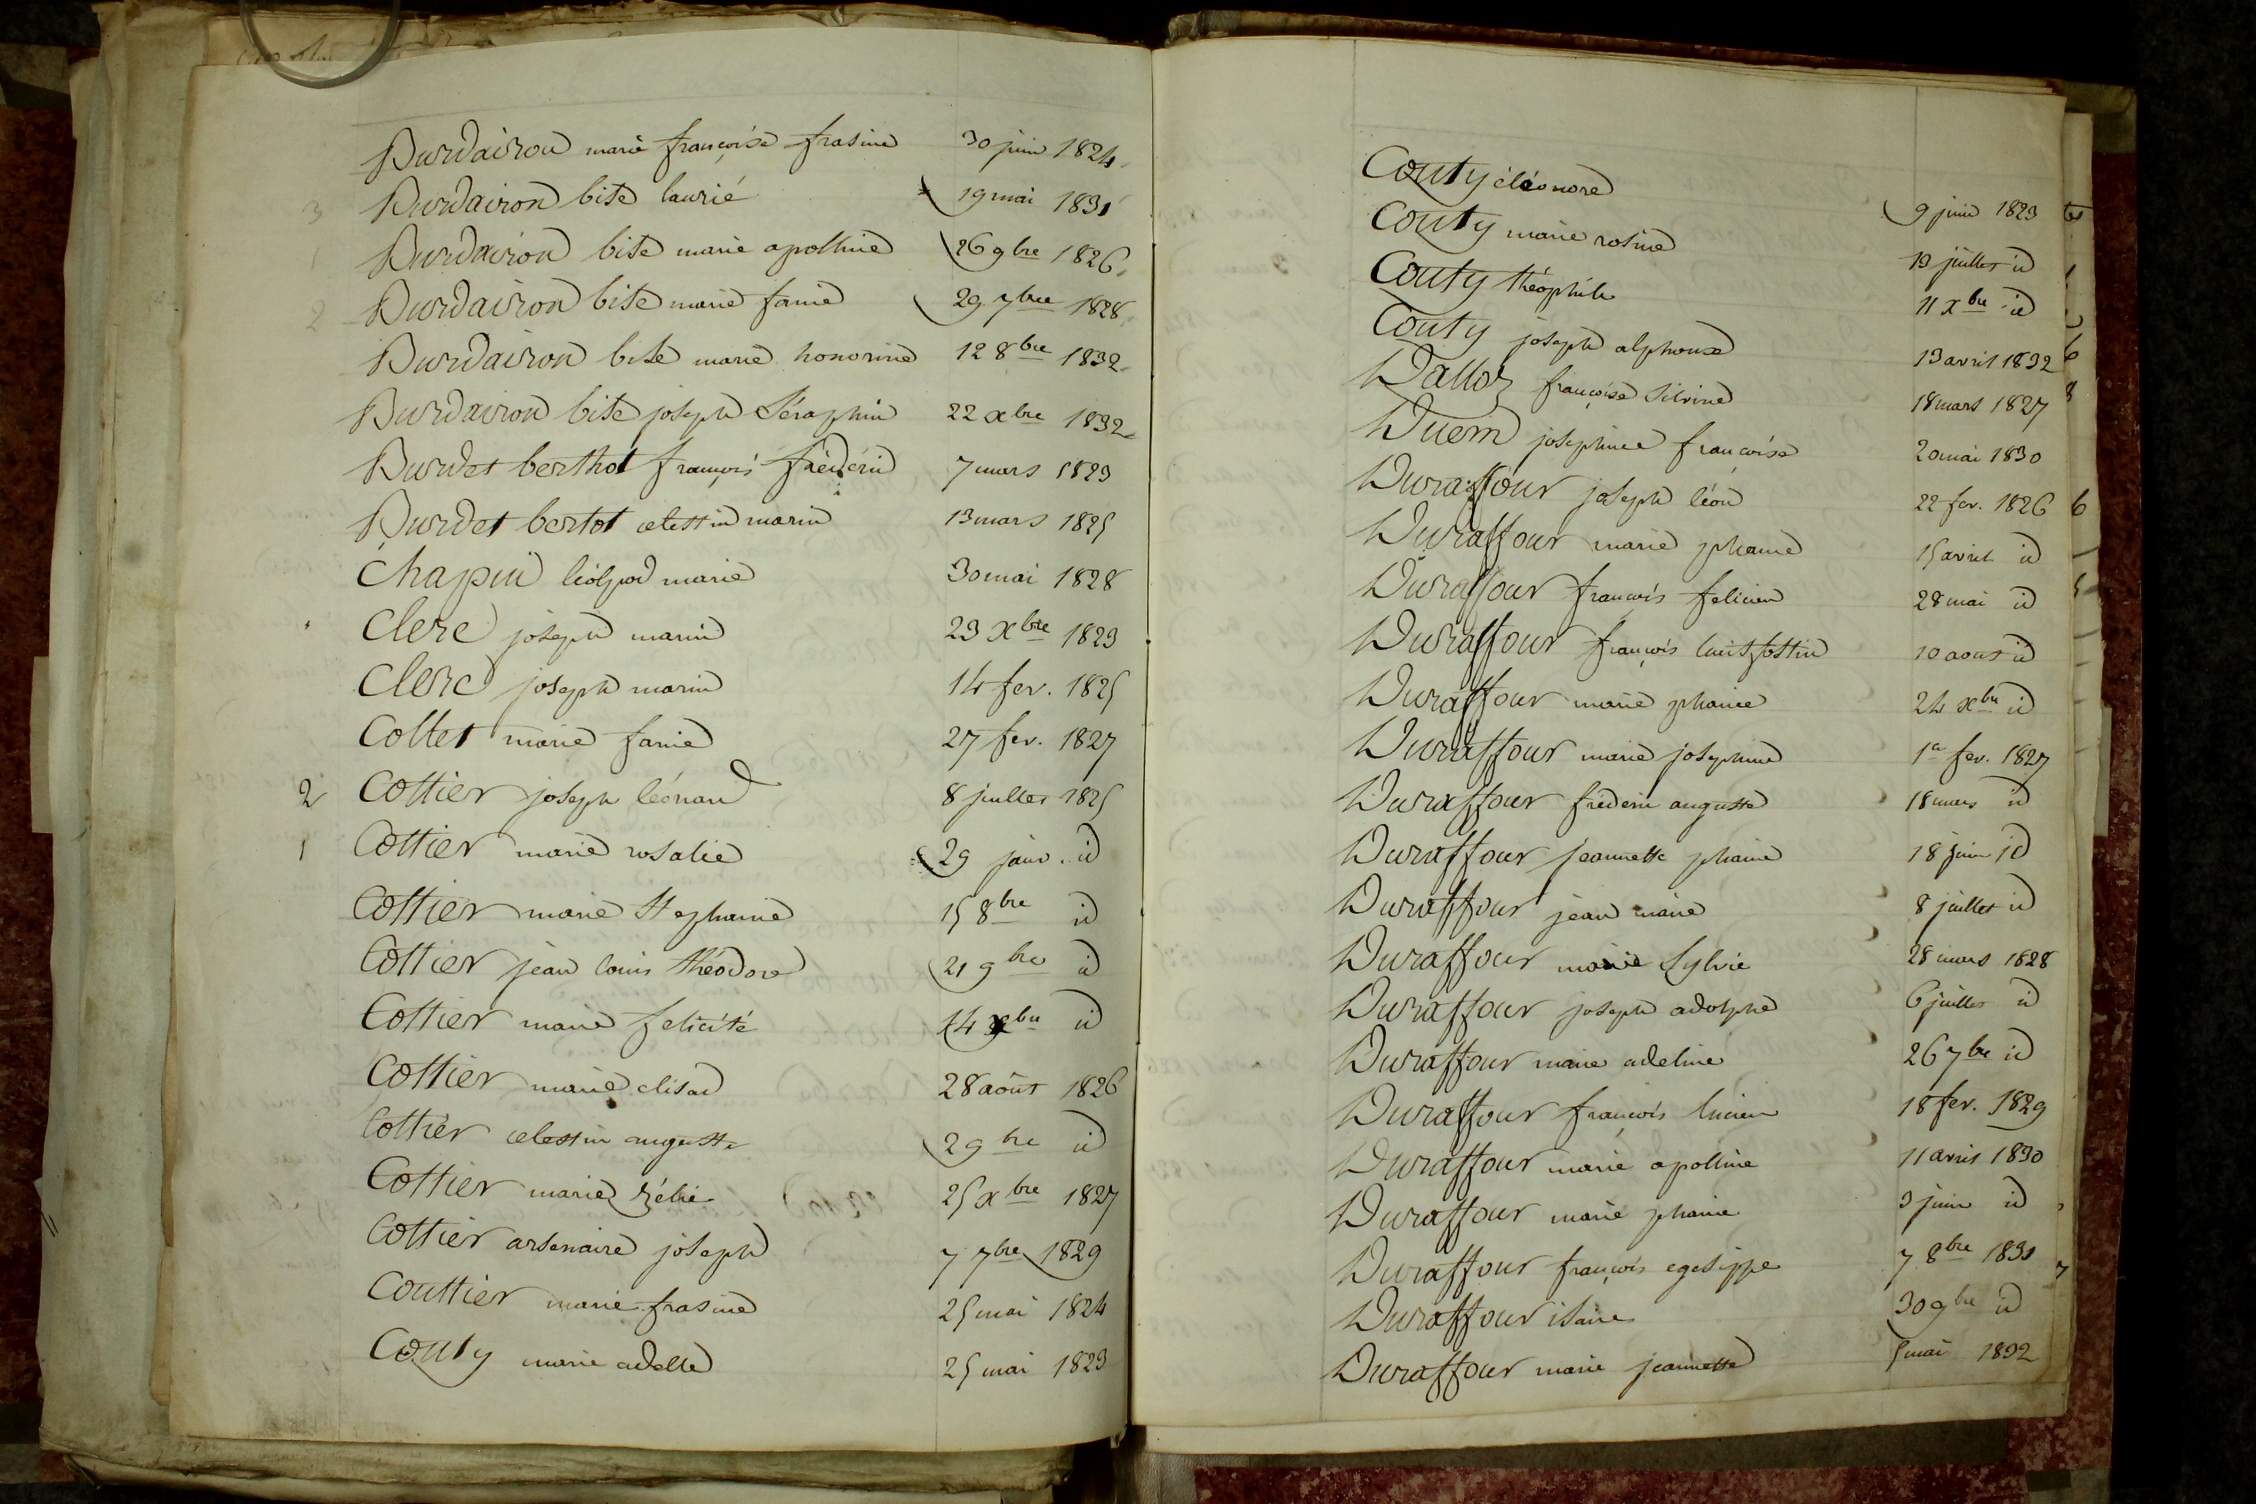 Burdairon marie françoise frasine 30 juin 1824
3 Burdairon bite laurié 19 mai 1831
1 Burdairon bite marie apolline 26 9bre 1826
2 Burdairon bite marie fanie 29 7bre 1828
Burdairon bite marie honorine 12 8bre 1832
Burdairon bite joseph Séraphin 22 xbre 1832
Burdet berthot françois frédéric 7 mars 1823
Burdet bertot celestin marin 13 mars 1825
Chapin léolpod marie 30 mai 1828
Clerc joseph marin 23 xbre 1823
Clerc joseph marin 14 fev. 1825
Collet marie fanie 27 fev. 1827
2 Cottier joseph léonard 8 juillet 1825
1 Cottier marie rosalie 29 janv. id
Cottier marie Stephanie 15 8bre id
Cottier jean louis théodore 21 9bre id
Cottier marie felicité 14 xbre id
Cottier marie elisa 28 août 1826
Cottier celestin auguste 2 9bre id
Cottier marie Zélie 25 xbre 1827
Cottier arsenaire joseph 7 7bre 1829
Couttier marie frasine 25 mai 1824
Couty marie adelle 25 mai 1823
Couty éléonore 9 juin 1823
Couty marie rosine 19 juillet id
Couty théophile 11 xbre id
Couty joseph alphonse 13 avril 1832
Dalloz françoise Silvine 18 mars 1827
Duem josephine françoise 20 mai 1830
Duraffour joseph léon 22 fev. 1826
Duraffour marie phanie 15 avril id
Duraffour françois felicien 28 mai id
Duraffour françois louis 10 aout id
Duraffour marie phanie 24 xbre id
Duraffour marie josephine 1er fev. 1827
Duraffour frederic auguste 18 mars id
Duraffour jeannette phanie 18 juin id
Duraffour jean marie 8 juillet id
Duraffour marie Sylvie 28 mars 1828
Duraffour joseph adolphe 6 juillet id
Duraffour marie adeline 26 7bre id
Duraffour françois lucien 18 fev. 1829
Duraffour marie apolline 11 avril 1830
Duraffour marie phanie 3 juin id
Duraffour françois egesippe 7 8bre 1831
Duraffour isaire 30 9bre id
Duraffour marie jeannette 5 mai 1832